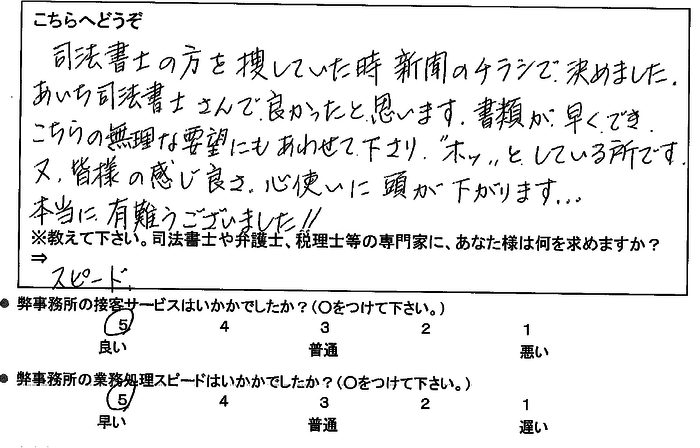 こちらへどうぞ
司法書士の方を捜していた時新聞のチラシで決めました.
あいち司法書士さんで良かったと思います.書類が早くでき.
こちらの無理な要望にもあわせて下さり."ホッ,,としている所です.
又.皆様の感じ良さ.心使いに頭が下がります...
本当に有難うございました!!
※教えて下さい。司法書士や弁護士、税理士等の専門家に、あなた様は何を求めますか?
⇒
スピード.
● 弊事務所の接客サービスはいかかでしたか?(○をつけて下さい。)
5 4 3 2 1
良い 普通 悪い
● 弊事務所の業務処理スピードはいかかでしたか?(○をつけて下さい。)
5 4 3 2 1
早い 普通 遅い